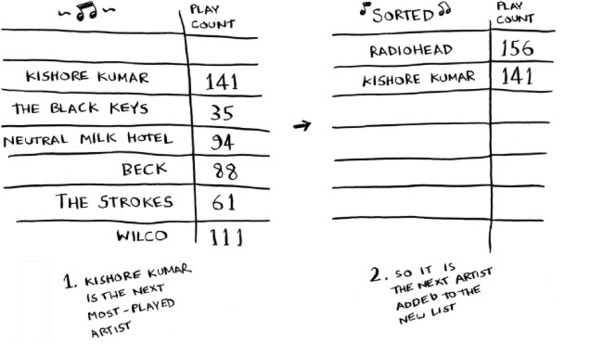 PLAY
COUNT
KISHORE KUMAR 141
THE BLACK KEYS 35
NEUTRAL MILK HOTEL 94
BECK 88
THE STROKES 61
WILCO 111
1. KISHORE KUMAR
IS THE NEXT
MOST-PLAYED
ARTIST
SORTED
PLAY
COUNT
RADIOHEAD 156
KISHORE KUMAR 141
2. SO IT IS
THE NEXT ARTIST
ADDED TO THE
NEW LIST